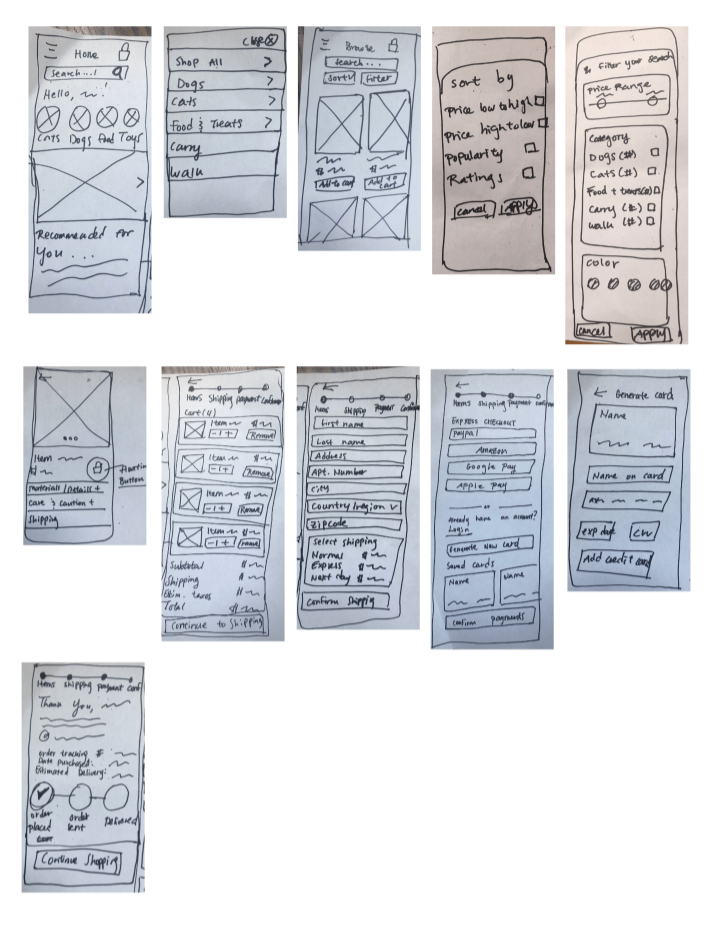 Home
Search...!
Hello,
Cats Dogs Food Toys
Recommended for
you...
Close X
Shop All >
Dogs >
Cats >
Food & Treats >
Carry
Walk
Browse
Search...
Sort Filter
Add to cart Add to cart
Sort by
Price low to high
Price high to low
Popularity
Ratings
Cancel APPLY
Filter your search
Price Range
Category
Dogs (#)
Cats (#)
Carry (#)
Walk (#)
Color
Cancel APPLY
Item
$
Materials/Details +
Care & Caution +
Shipping
Button
Items Shipping Payment Confirm
Cart (4)
Item $
- 1 + Remove
Item $
- 1 + Remove
Item $
- 1 + Remove
Item $
- 1 + Remove
Subtotal $
Shipping $
Estim. taxes $
Total $
Continue to Shipping
Items Shipping Payment Confirm
First name
Last name
Address
Apt. Number
City
Country/region v
Zipcode
Select Shipping
Normal $
Express $
Next day $
Confirm Shipping
Items Shipping Payment
EXPRESS CHECKOUT
Paypal
Amazon
Google Pay
Apple Pay
or
Already have an account?
Login
Generate New Card
Saved cards
Name Name
Confirm payments
Generate card
Name
Name on card
exp date CVV
Add credit card
Items Shipping payment conf
Thank You,
Order tracking #
Date purchased:
Estimated Delivery:
order placed
order sent
Delivered
Continue Shopping